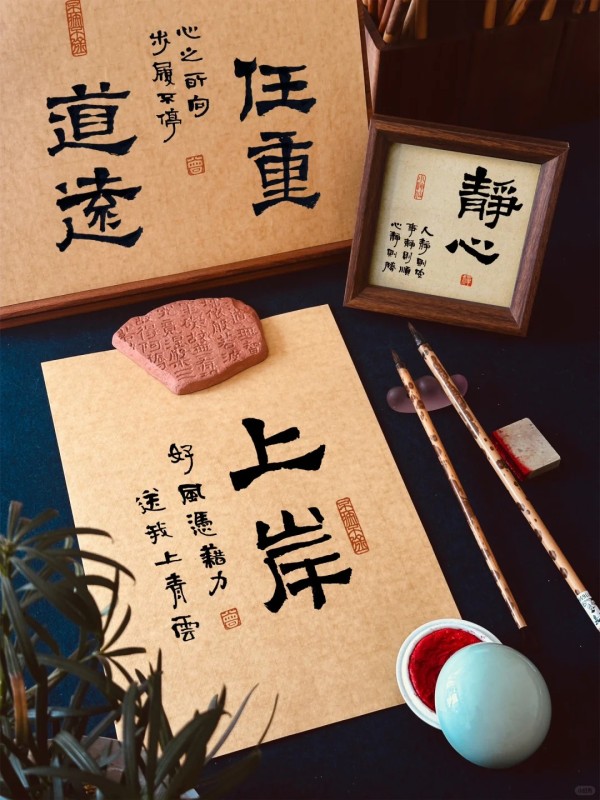 任重
道遠
心之所向
步履不停
靜心
人靜則
事靜則順
心靜則
上岸
好風憑藉力
送我上青雲